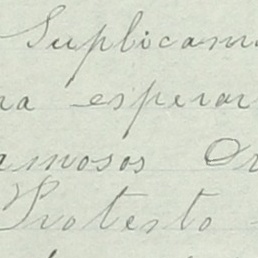 Suplicam
ra esperar
amosos Or
Protesto